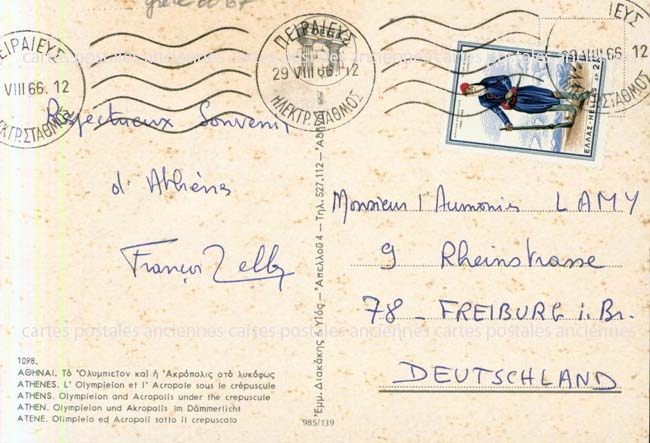 Grèce 60 67
ΠΕΙΡΑΙΕΥΣ
VIII 66. 12
ΗΛΕΚΤΡ.ΣΤΑΘΜΟΣ
ΠΕΙΡΑΙΕΥΣ
29 VIII 66. 12
ΗΛΕΚΤΡ.ΣΤΑΘΜΟΣ
29 VIII 66. 12
ΕΛΛΑΣ-HELLAS
cartes postales anciennes cartes postales anciennes cartes postales anciennes
Respectueux Souvenir
d'Athènes
Monsieur l'Aumonier LAMY
9 Rheinstrasse
78 - FREIBURG i. Br.
DEUTSCHLAND
cartes postales anciennes cartes postales anciennes cartes postales anciennes
1098.
ΑΘΗΝΑΙ. Τὸ Ὀλυμπιεῖον καὶ ἡ Ἀκρόπολις στὸ λυκόφως
ATHENES. L' Olympieion et l' Acropole sous le crépuscule
ATHENS. Olympieion and Acropolis under the crepuscule
ATHEN. Olympieion und Akropolis im Dämmerlicht
ATENE. Olimpieio ed Acropoli sotto il crepuscolo
Ἐμμ. Διακάκης & Υἱός - Ἀπελλοῦ 4 - Τηλ. 527.112 -
985/139